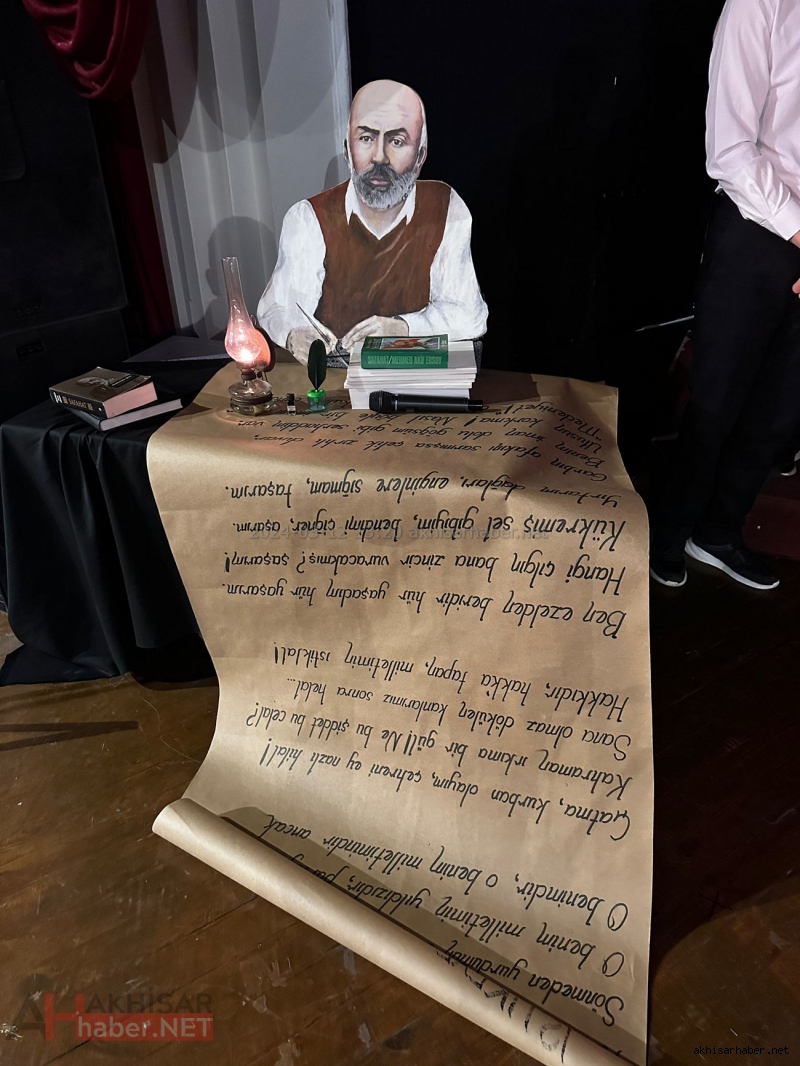 SAFAHAT/MEHMED AKİF ERSOY
SAFAHAT
Sönmeden yurdumun
O benim milletimin yıldızıdır, par
O benimdir, o benim milletimindir ancak
Çatma, kurban olayım, çehreni ey nazlı hilal!
Kahraman ırkıma bir gül! Ne bu şiddet bu celal?
Sana olmaz dökülen kanlarımız sonra helal...
Hakkıdır, hakk'a tapan, milletimin istiklal!
Ben ezelden beridir hür yaşadım hür yaşarım.
Hangi çılgın bana zincir vuracakmış? Şaşarım!
Kükremiş sel gibiyim, bendimi çiğner, aşarım.
Yırtarım dağları, enginlere sığmam, taşarım.
Garbın afakını sarmışsa çelik zırhlı duvar.
Benim iman dolu göğsüm gibi serhaddim var.
Ulusun, korkma! Nasıl böyle bir
"Medeniyet!"
akhisarhaber.net
AKHISAR
haber.NET
akhisarhaber.net